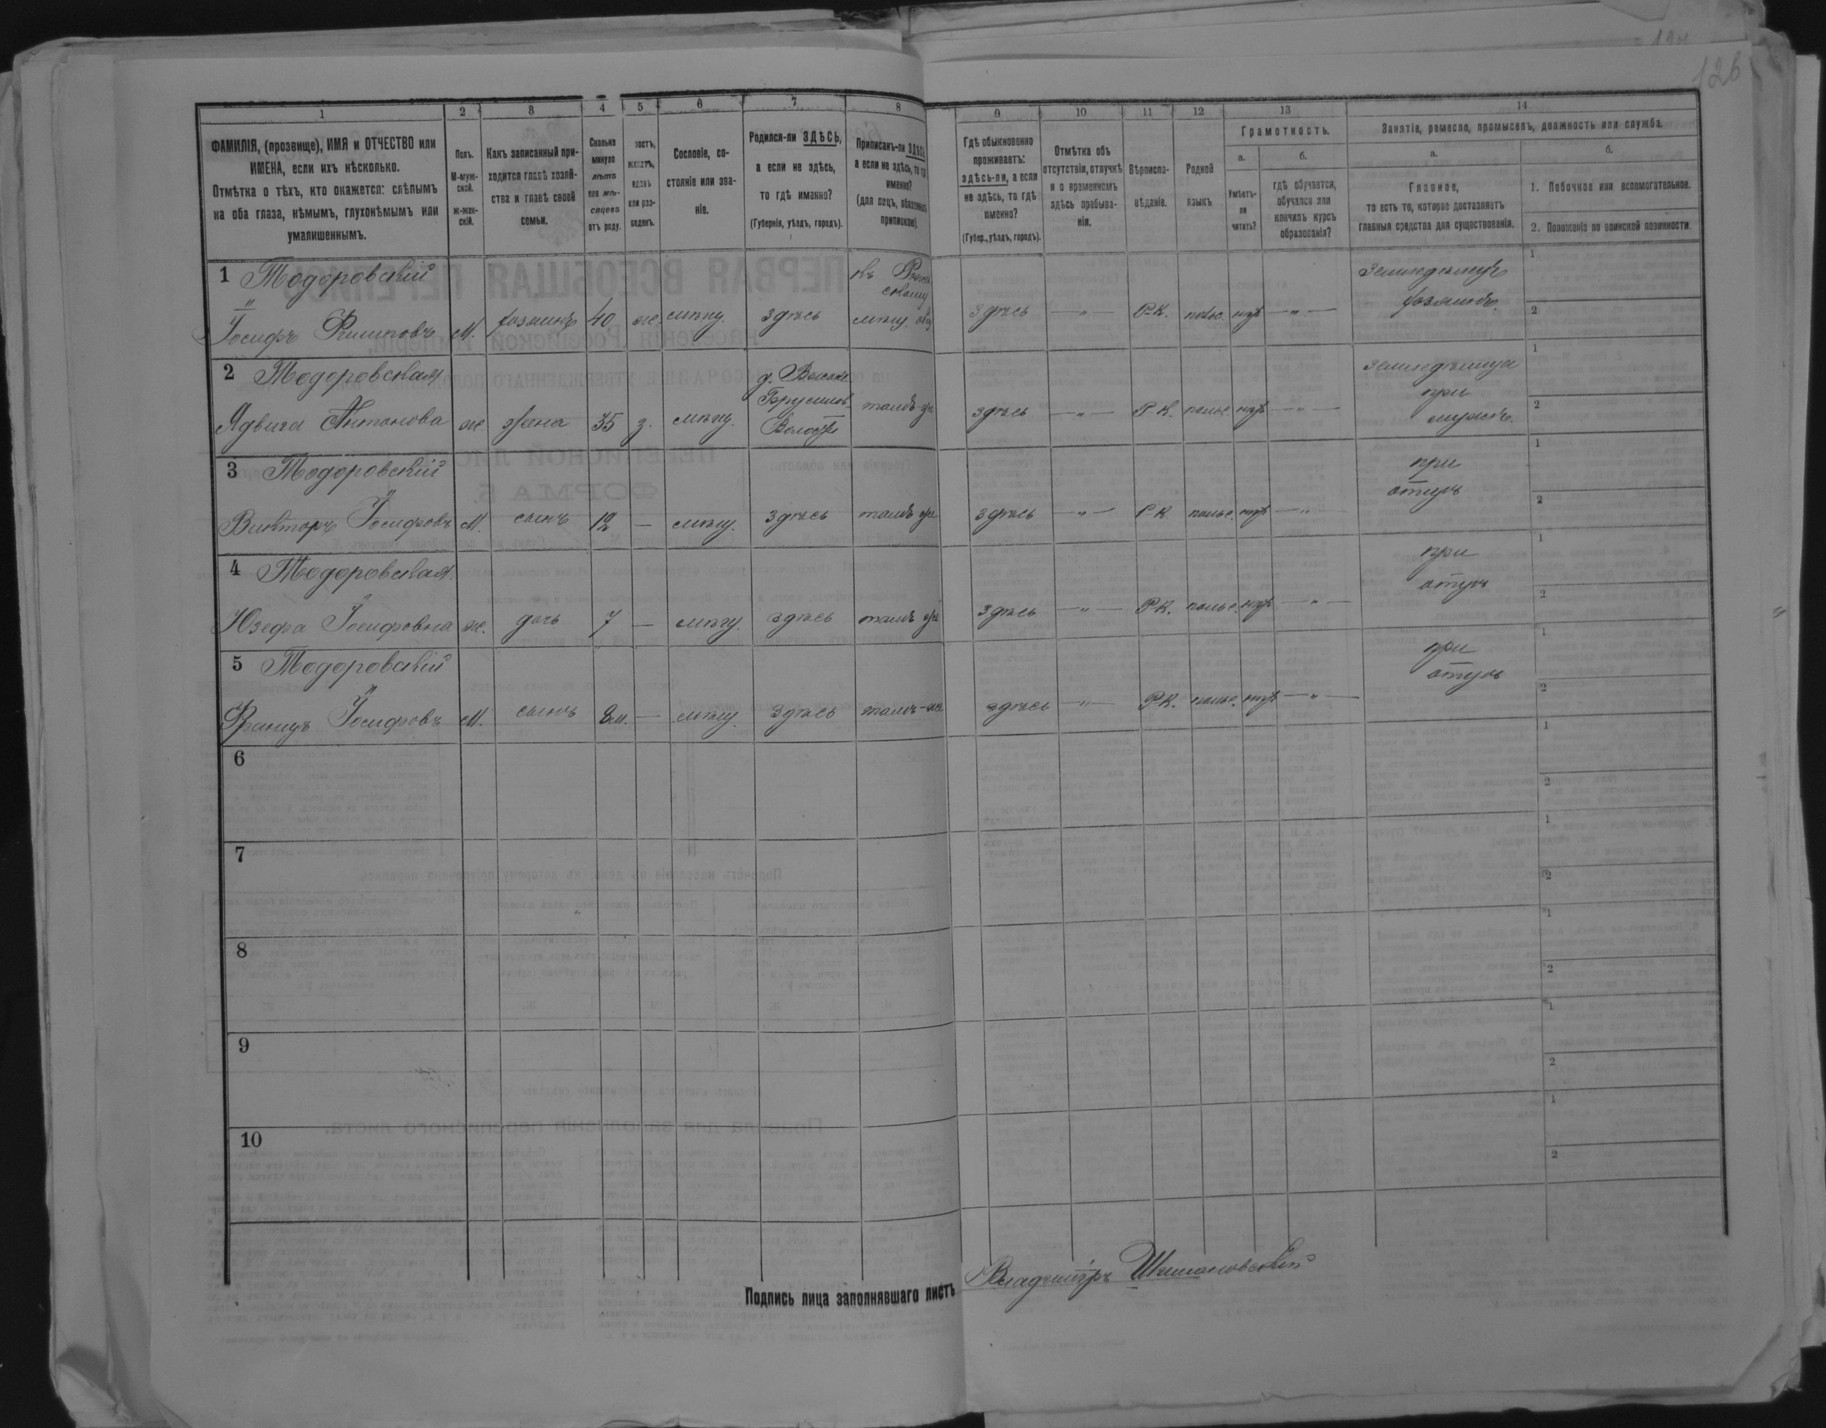 126
1 2 3 4 5 6 7 8 9 10 11 12 13 14
ФАМИЛІЯ, (прозвище), ИМЯ и ОТЧЕСТВО или
ИМЕНА, если ихъ нѣсколько.
Отмѣтка о тѣхъ, кто окажется: слѣпымъ
на оба глаза, нѣмымъ, глухонѣмымъ или
умалишеннымъ.
Полъ.
М-муж-
ской.
ж-жен-
скій.
Какъ записанный при-
ходится главѣ хозяй-
ства и главѣ своей
семьи.
Сколько
минуло
лѣтъ
или мѣ-
сяцевъ
отъ роду.
ростъ,
женатъ,
вдовъ
или раз-
веденъ.
Сословіе, со-
стояніе или зва-
ніе.
Родился-ли ЗДѢСЬ,
а если не здѣсь,
то гдѣ именно?
(Губернія, уѣздъ, городъ).
Приписанъ-ли ЗДѢСЬ
а если не здѣсь, то гдѣ
именно?
(для лицъ, обязанныхъ
припискою).
Гдѣ обыкновенно
проживаетъ:
здѣсь-ли, а если
не здѣсь, то гдѣ
именно?
(Губер., уѣздъ, городъ).
Отмѣтка объ
отсутствіи, отлучкѣ
и о временномъ
здѣсь пребыва-
ніи.
Вѣроиспо-
вѣданіе.
Родной
языкъ
Грамотность.
а.
Умѣетъ-
ли
читать?
б.
гдѣ обучается,
обучался или
кончилъ курсъ
образованія?
Занятіе, ремесло, промыселъ, должность или служба.
а.
Главное,
то есть то, которое доставляетъ
главныя средства для существованія.
б.
1. Побочное или вспомогательное.
2. Положеніе по воинской повинности.
1 Тодоровскій
Іосифъ Филиповъ м. хозяинъ 40 ж. мѣщ. здѣсь
мѣщ.
здѣсь —"— Р.К. польс. нѣтъ —"—
земледѣлецъ
хозяинъ.
1
2
2 Тодоровская
Ядвига Антонова ж жена 35 з. мѣщ.
Брусилов.
Волости
тамъ-же
здѣсь —"— Р.К. польс. нѣтъ —"—
земледѣлица
при
мужѣ.
1
2
3 Тодоровскій
Викторъ Іосифовъ м. сынъ 12 — мѣщ. здѣсь тамъ же здѣсь —"— Р.К польс. нѣтъ —"—
при
отцѣ
1
2
4 Тодоровская
Юзефа Іосифовна ж. дочь 7 — мѣщ. здѣсь тамъ же здѣсь —"— Р.К. польс. нѣтъ —"—
при
отцѣ
1
2
5 Тодоровскій
Францъ Іосифовъ м. сынъ 8м. — мѣщ. здѣсь тамъ-же здѣсь —"— Р.К. польс. нѣтъ —"—
при
отцѣ
1
2
6
1
2
7
1
2
8
1
2
9
1
2
10
1
2
Подпись лица заполнявшаго листъ Владиміръ Шимановскій